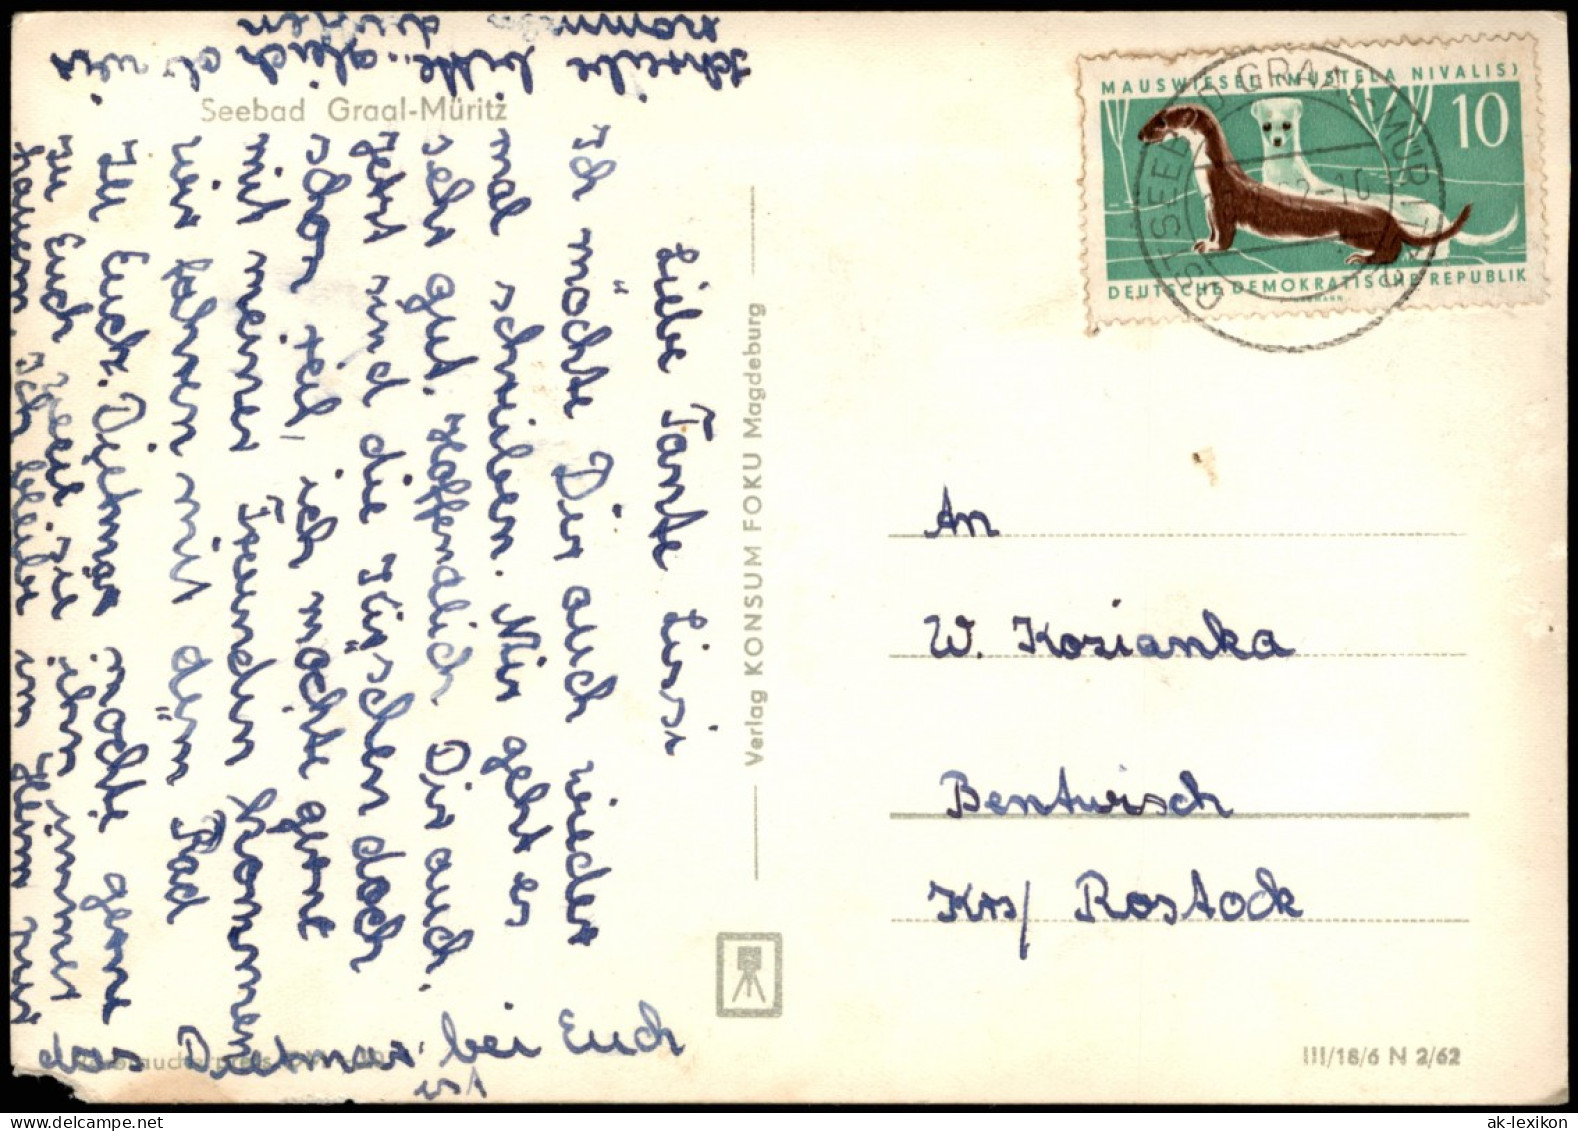 Seebad Graal-Müritz
Liebe Tante Lissi
Ich möchte Dir auch wieder
mal schreiben. Mir geht es
sehr gut. Hoffendlich Dir auch.
Jetzt sind die Kirschen doch
schon reif, ich möchte gerne
mit meinen Freunden kommen
wir fahren mit dem Rad
zu Euch. Dietmar möchte gerne
zu Euch weil wir ihn immer
ich bleibe im Heim nur
das Dietmar bei Euch
ist
schreibe bitte gleich ob wir
kommen dürfen
Verlag KONSUM FOKU Magdeburg
MAUSWIESEL (MUSTELA NIVALIS)
10
DEUTSCHE DEMOKRATISCHE REPUBLIK
OSTSEEBAD GRAAL-MÜRITZ
An
W. Kozianka
Bentwisch
Krs/ Rostock
III/18/6 N 2/62
ak-lexikon